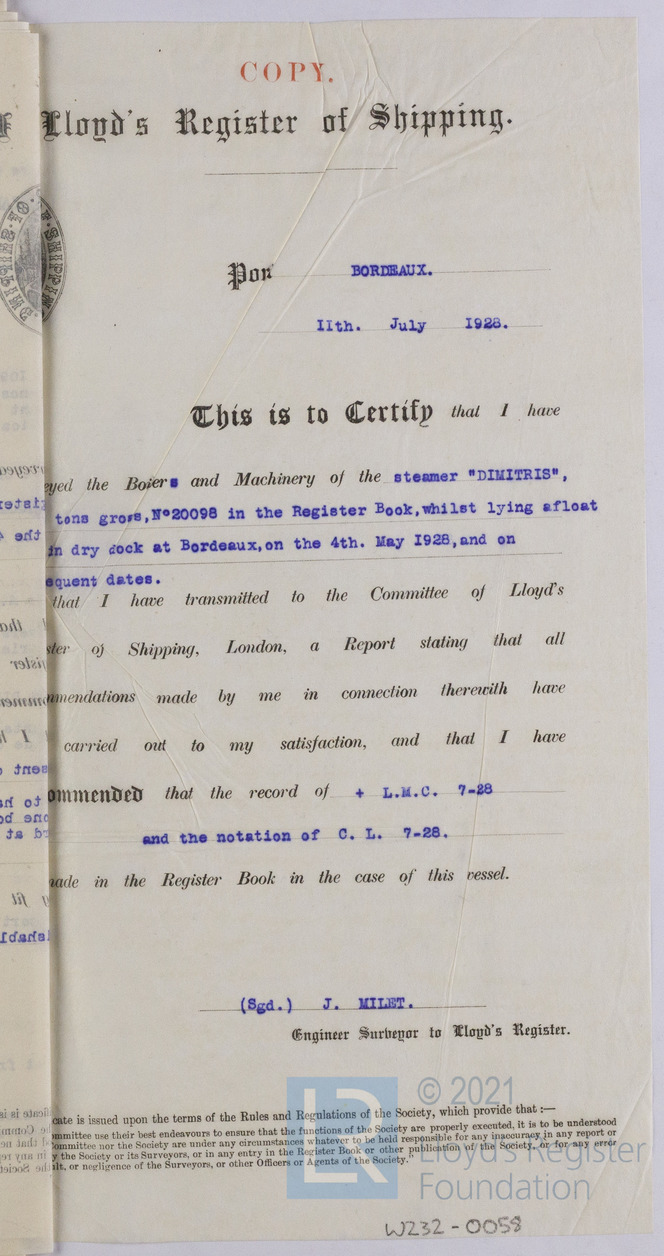 COPY.
Lloyd's Register of Shipping.
Port BORDEAUX.
11th. July 1928.
This is to Certify that I have
eyed the Boiers and Machinery of the steamer "DIMITRIS",
tons gross, Nº20098 in the Register Book, whilst lying afloat
in dry dock at Bordeaux, on the 4th. May 1928, and on
equent dates.
that I have transmitted to the Committee of Lloyd's
ster of Shipping, London, a Report stating that all
mmendations made by me in connection therewith have
carried out to my satisfaction, and that I have
ommended that the record of + L.M.C. 7-28
and the notation of C. L. 7-28.
made in the Register Book in the case of this vessel.
(Sgd.) J. MILET.
Engineer Surveyor to Lloyd's Register.
cate is issued upon the terms of the Rules and Regulations of the Society, which provide that :—
ommittee use their best endeavours to ensure that the functions of the Society are properly executed, it is to be understood
ommittee nor the Society are under any circumstances whatever to be held responsible for any inaccuracy in any report or
y the Society or its Surveyors, or in any entry in the Register Book or other publication of the Society, or for any error
lt, or negligence of the Surveyors, or other Officers or Agents of the Society."
LR
© 2021
Lloyd's Register
Foundation
W232-0058